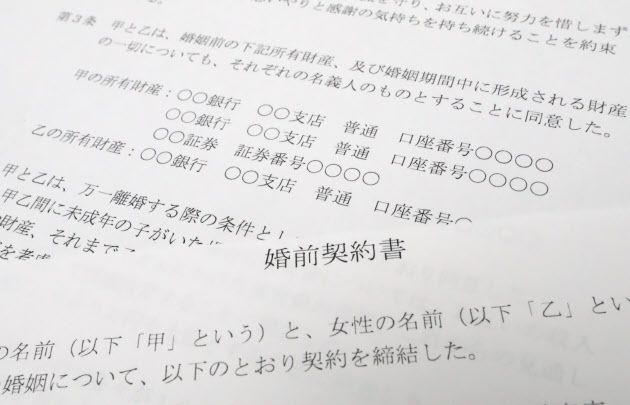 を守り、お互いに努力を惜しまず
やりと感謝の気持ちを持ち続けることを約束
する。
第3条 甲と乙は、婚姻前の下記所有財産、及び婚姻期間中に形成される財産
の一切についても、それぞれの名義人のものとすることに同意した。
甲の所有財産:〇〇銀行 〇〇支店 普通 口座番号〇〇〇〇
〇〇銀行 〇〇支店 普通 口座番号〇〇〇〇
〇〇証券 証券番号〇〇〇〇
乙の所有財産:〇〇銀行 〇〇支店 普通 口座番号〇
甲と乙は、万一離婚する際の条件と
甲乙間に未成年の子がいた
財産、それまで
を考慮
婚前契約書
の名前(以下「甲」という)と、女性の名前(以下「乙」とい
婚姻について、以下のとおり契約を締結した。